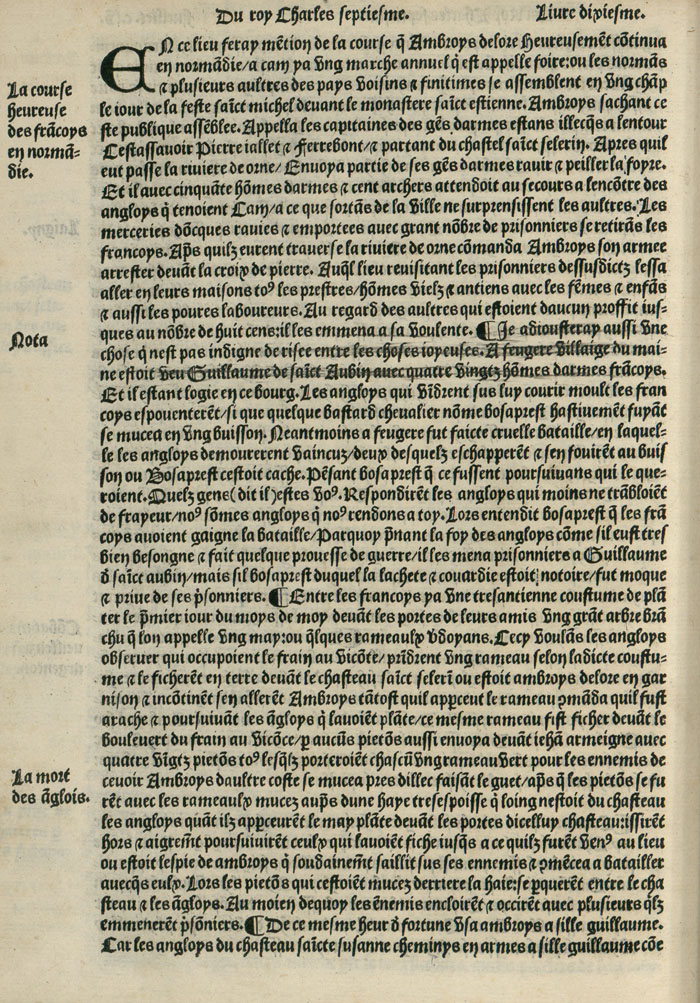 Du roy Charles septiesme. Liure dixiesme.
EN ce lieu feray mẽtion de la course q̃ Ambroys delore heureusemẽt cõtinua
en normãdie/a cam ya vng marche annuel q̃ est appelle foire:ou les normãs
⁊ plusieurs aultres des pays voisins ⁊ finitimes se assemblent en vng chãp
La course
heureuse
des frãcoys
en normã-
die.
le iour de la feste saĩct michel deuant le monastere saĩct estienne. Ambroys sachant ce
ste publique assẽblee. Appella les capitaines des gẽs darmes estans illecq̃s a lentour
Cestassauoir Pierre iallet ⁊ Ferrebont/⁊ partant du chastel saĩct selerin. Apres quil
eut passe la riuiere de orne/Enuoya partie de ses gẽs darmes rauir ⁊ peiller la foyre.
Et il auec cinquãte hõmes darmes ⁊ cent archers attendoit au secours a lencõtre des
angloys q̃ tenoient Cam/a ce que sortãs de la ville ne surprensissent les aultres. Les
merceries dõcques rauies ⁊ emportees auec grant nõbre de prisonniers se retirãs les
francoys. Ap̃s quilz eurent trauerse la riuiere de orne cõmanda Ambroys son armee
arrester deuãt la croix de pierre. Auq̃l lieu reuisitant les prisonniers dessusdictz lessa
aller en leurs maisons toꝰ les prestres/hõmes vielz ⁊ antiens auec les fẽmes ⁊ enfãs
⁊ aussi les poures laboureurs. Au regard des aultres qui estoient daucun proffit ius-
ques au nõbre de huit cens:il les emmena a sa voulente. ¶ Je adiousteray aussi vne
Nota
chose q̃ nest pas indigne de risee entre les choses ioyeuses. A feugere villaige du mai-
ne estoit veu Guillaume de saĩct Aubin auec quatre vingtz hõmes darmes frãcoys.
Et il estant logie en ce bourg. Les angloys qui vĩdrent sus luy courir moult les fran
coys espouenterẽt/si que quelque bastard cheualier nõme bosaprest hastiuemẽt fuyãt
se mucea en vng buisson. Neantmoins a feugere fut faicte cruelle bataille/en laquel-
le les angloys demourerent vaincuz/deux desquelz eschapperẽt ⁊ sen fouirẽt au buis
son ou Bosaprest cestoit cache. Pẽsant bosaprest q̃ ce fussent poursuiuans qui le que-
roient. Quelz gens(dit il)estes voꝰ. Respondirẽt les angloys qui moins ne trãbloiẽt
de frayeur/noꝰ sõmes angloys q̃ noꝰ rendons a toy. Lors entendit bosaprest q̃ les frã
coys auoient gaigne la bataille/Parquoy p̃nant la foy des anglois cõme sil eust tres
bien besongne ⁊ fait quelque prouesse de guerre/il les mena prisonniers a Guillaume
d̃ saĩct aubin/mais sil bosaprest duquel la lachete ⁊ couardie estoit notoire/fut moque
⁊ priue de ses p̃sonniers. ¶ Entre les francoys ya vne tresantienne coustume de plã
ter le p̃mier iour du moys de moy deuãt les portes de leurs amis vng grãt arbre brã
chu q̃ lon appelle vng may:ou q̃lques rameaulx vdoyans. Cecy voulãs les angloys
obseruer qui occupoient le frain au vicõte/prĩdrent vng rameau selon ladicte coustu-
me ⁊ le ficherẽt en terre deuãt le chasteau saĩct selerĩ ou estoit ambroys delore en gar
nison ⁊ incõtinẽt sen allerẽt Ambroys tãtost quil app̃ceut le rameau ꝯmãda quil fust
arache ⁊ poursuiuãt les ãgloys q̃ lauoiẽt plãte/ce mesme rameau fist ficher deuãt le
bouleuert du frain au vicõce/p̱ aucũs pietõs aussi enuoya deuãt iehã armeigne auec
quatre vĩgtz pietõs toꝰ lesq̃lz porteroiẽt chascũ vng rameau vert pour les ennemis de
La mort
des ãglois.
ceuoir Ambroys daultre coste se mucea pres dillec faisãt le guet/ap̃s q̃ les pietõs se fu
rẽt auec les rameaulx mucez aup̃s dune haye tresespoisse q̃ loing nestoit du chasteau
les angloys quãt ilz app̱ceurẽt le may plãte deuãt les portes dicelluy chasteau:issirẽt
hors ⁊ aigremẽt poursuiuirẽt ceulx qui lauoiẽt fiche iusq̃s a ce quilz furẽt venꝰ au lieu
ou estoit lespie de ambroys q̃ soudainemẽt saillit sus ses ennemis ⁊ ꝯmẽcea a batailler
auecq̃s eulx. Lors les pietõs qui cestoiẽt mucez derriere la haie:se p̱querẽt entre le cha
steau ⁊ les ãgloys. Au moien dequoy les ẽnemis encloirẽt ⁊ occirẽt auec plusieurs q̃lz
emmenerẽt p̃sõniers. ¶ De ce mesme heur d̃ fortune vsa ambroys a sille guillaume.
Car les angloys du chasteau saĩcte susanne cheminys en armes a sille guillaume cõe